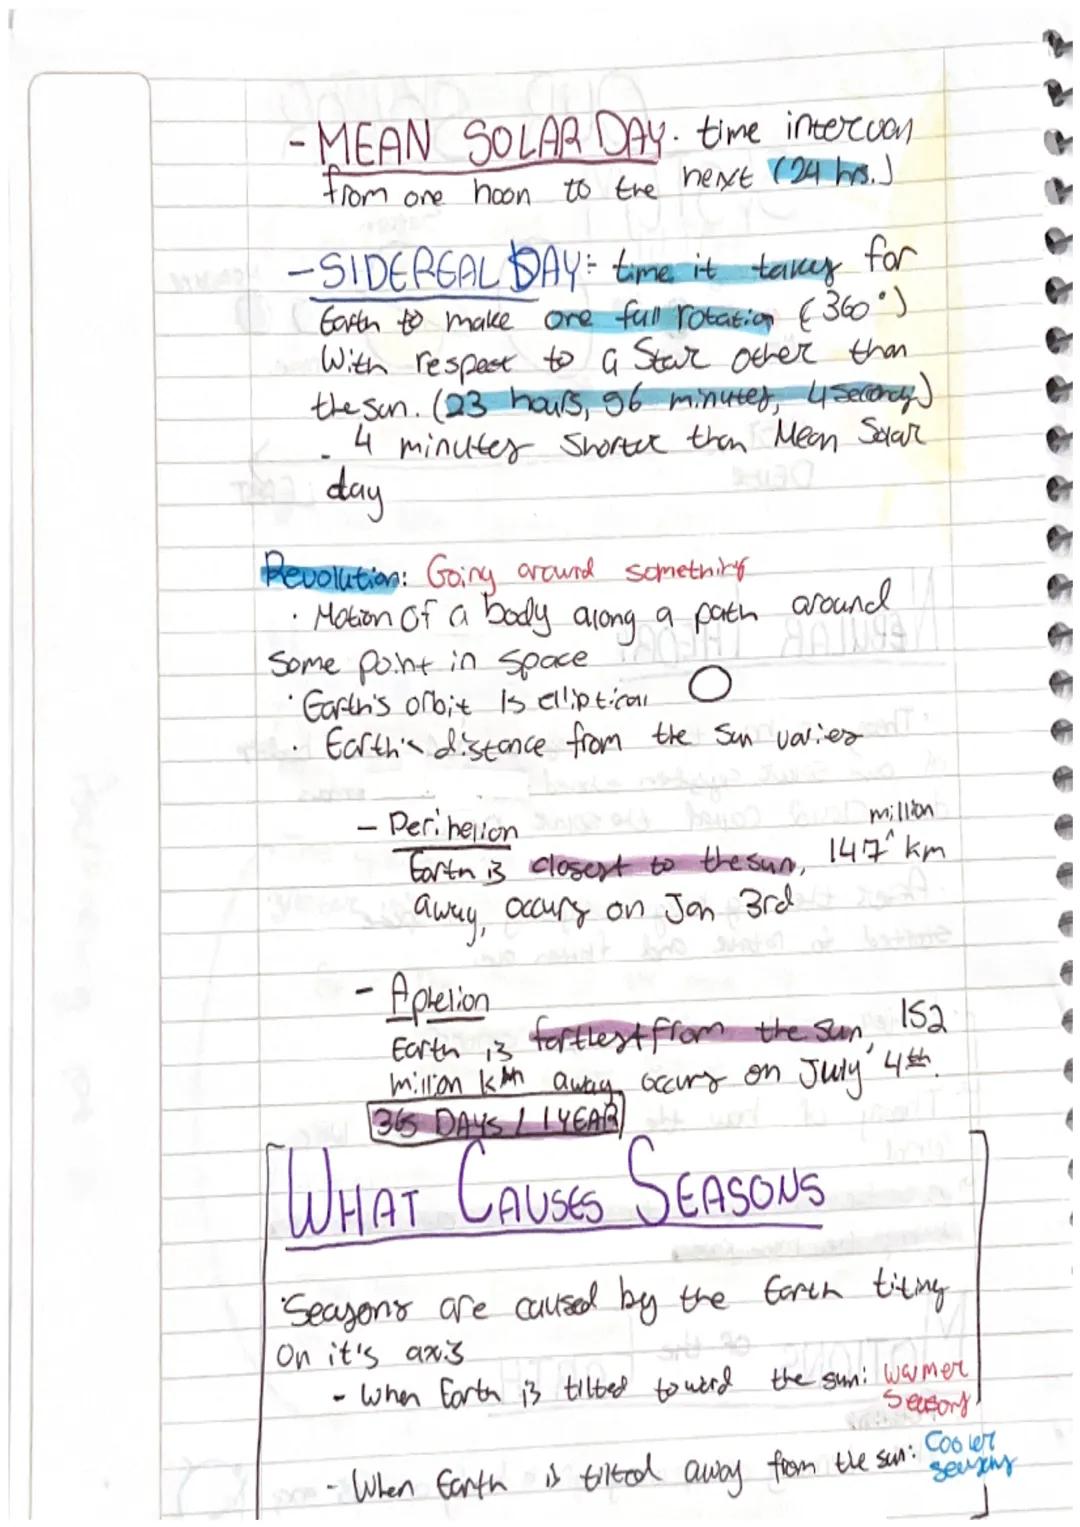 - MEAN SOLAR DAY. time interval
from one noon to the next (24 hrs.)
- SIDEREAL DAY: time it takes for
Earth to make one full rotation (360°)
With respect to a Star other than
the sun. (23 hours, 56 minutes, 4 seconds)
- 4 minutes Shorter than Mean Solar
day
Revolution: Going around something
· Motion of a body along a path around
Some point in space
· Earth's orbit is elliptical
· Earth's distance from the Sun varies
- Perihelion
million
Earth is closest to the sun, 147^ km
away, occurs on Jan 3rd
- Aphelion
Earth is farthest from the sun, 152
million km away, occurs on July 4th.
365 DAYS / 1 YEAR
WHAT CAUSES SEASONS
· Seasons are caused by the Earth tilting
On it's axis
- When Earth is tilted toward the sun: warmer
Seasons
- When Earth is tilted away from the sun: Cooler
seasons